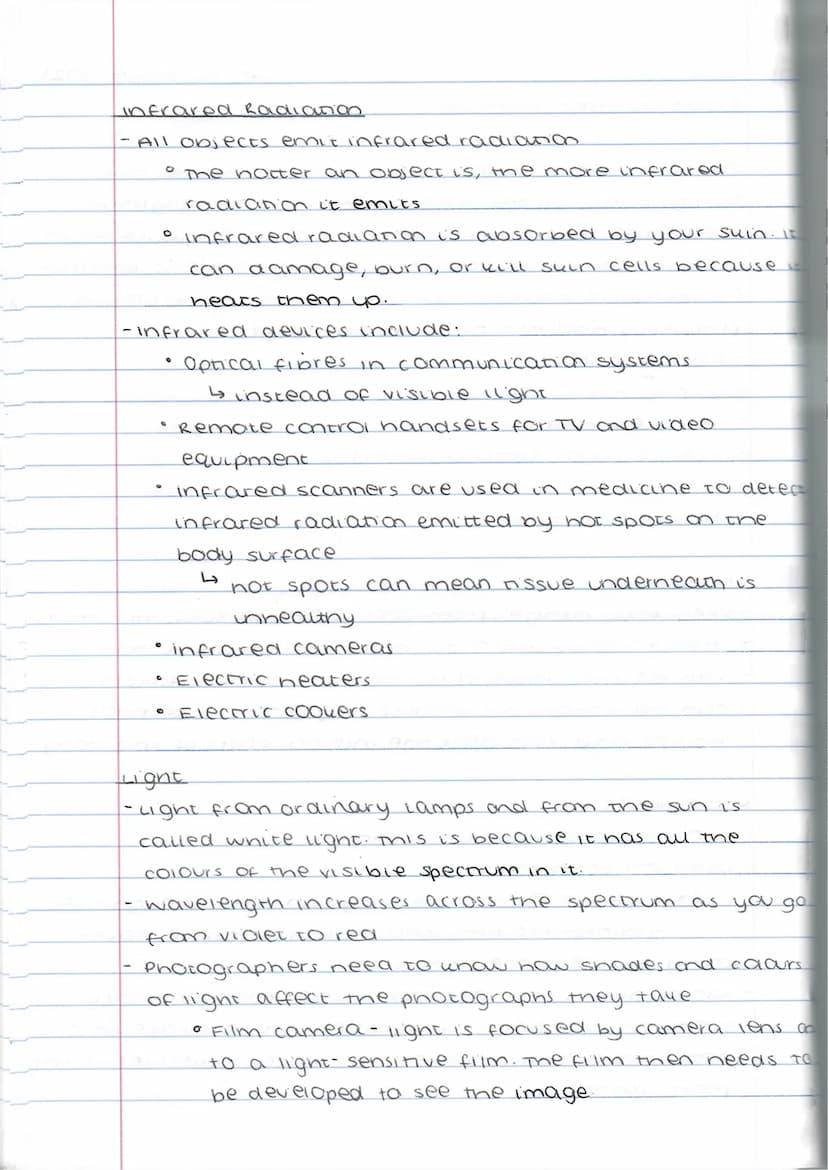 Infrared Radiation
- All objects emit infrared radiation
° The hotter an object is, the more infrared
radiation it emits
° Infrared radiation is absorbed by your skin. It
can damage, burn, or kill skin cells because
heats them up.
- Infrared devices include:
• Optical fibres in communication systems
↳ instead of visible light
• Remote control handsets for TV and video
equipment
• infrared scanners are used in medicine to detec
infrared radiation emitted by hot spots on the
body surface
↳ hot spots can mean tissue underneath is
unhealthy
• infrared cameras
• Electric heaters
• Electric cookers
Light
- Light from ordinary lamps and from the sun is
called white light. This is because it has all the
colours of the visible spectrum in it.
- wavelength increases across the spectrum as you go
from violet to red
- Photographers need to know how shades and colours
of light affect the photographs they take
° Film camera - light is focused by camera lens on
to a light-sensitive film. The film then needs to
be developed to see the image.